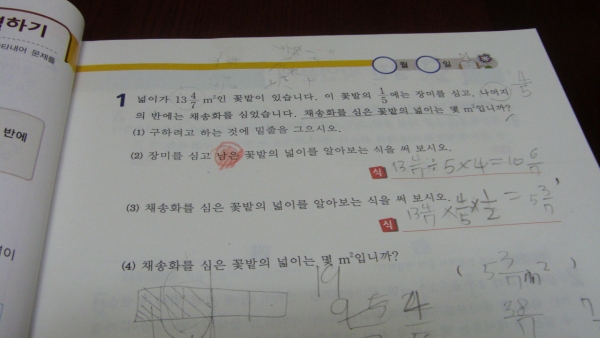 하기
타내어 문제를
월 일
1 넓이가 13 4/7 m²인 꽃밭이 있습니다. 이 꽃밭의 1/5 에는 장미를 심고, 나머지
의 반에는 채송화를 심었습니다. 채송화를 심은 꽃밭의 넓이는 몇 m²입니까?
4/5
(1) 구하려고 하는 것에 밑줄을 그으시오.
반에
(2) 장미를 심고 남은 꽃밭의 넓이를 알아보는 식을 써 보시오.
식 13 4/7 ÷ 5 × 4 = 10 6/7
(3) 채송화를 심은 꽃밭의 넓이를 알아보는 식을 써 보시오.
식 13 4/7 × 4/5 × 1/2 = 5 3/7
이
(4) 채송화를 심은 꽃밭의 넓이는 몇 m²입니까?
( 5 3/7 m² )
19
38/7